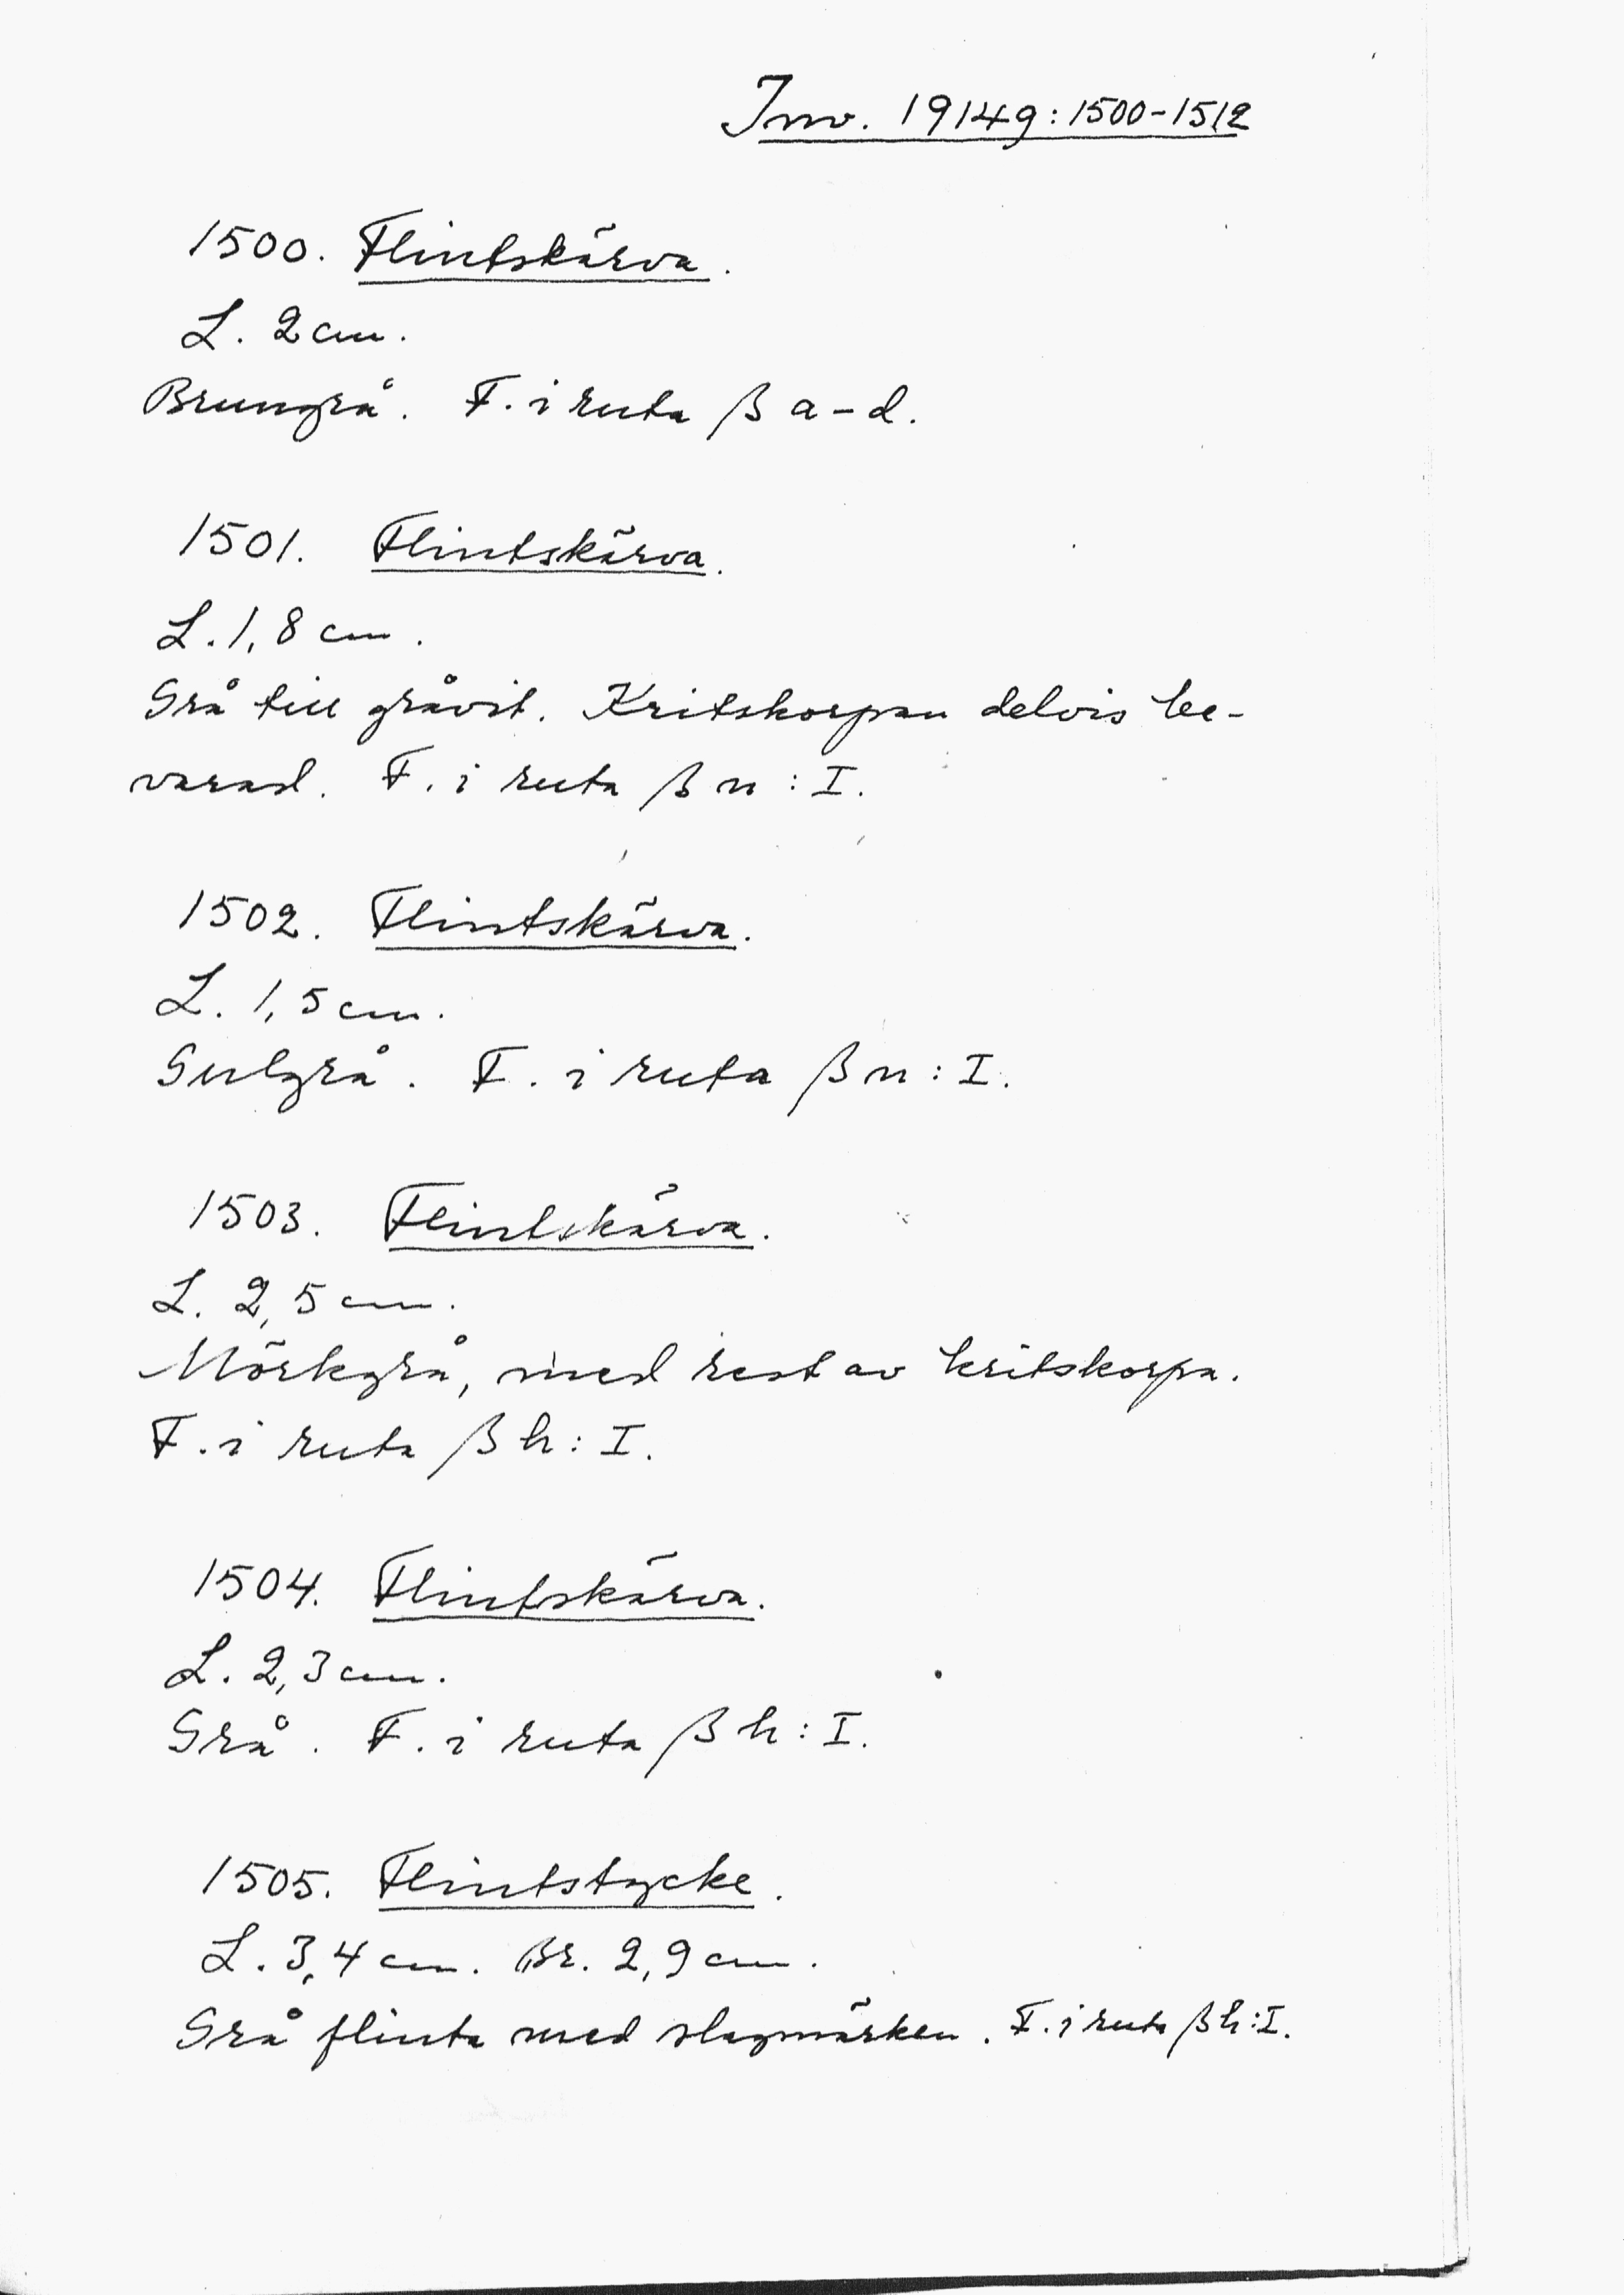 Inv. 19149:1500-1512
1500. Flintskärva.
L. 2 cm.
Brungrå. F. i ruta β a-d.
1501. Flintskärva.
L. 1,8 cm.
Grå till gråvit. Kritskorpan delvis be-
varad. F. i ruta β n: I.
1502. Flintskärva.
L. 1,5 cm.
Gulgrå. F. i ruta β n: I.
1503. Flintskärva.
L. 2,5 cm.
Mörkgrå, med rest av kritskorpa.
F. i ruta β h: I.
1504. Flintskärva.
L. 2,3 cm.
Grå. F. i ruta β h: I.
1505. Flintstycke.
L. 3,4 cm. Br. 2,9 cm.
Grå flinta med slagmärken. F. i ruta β h: I.